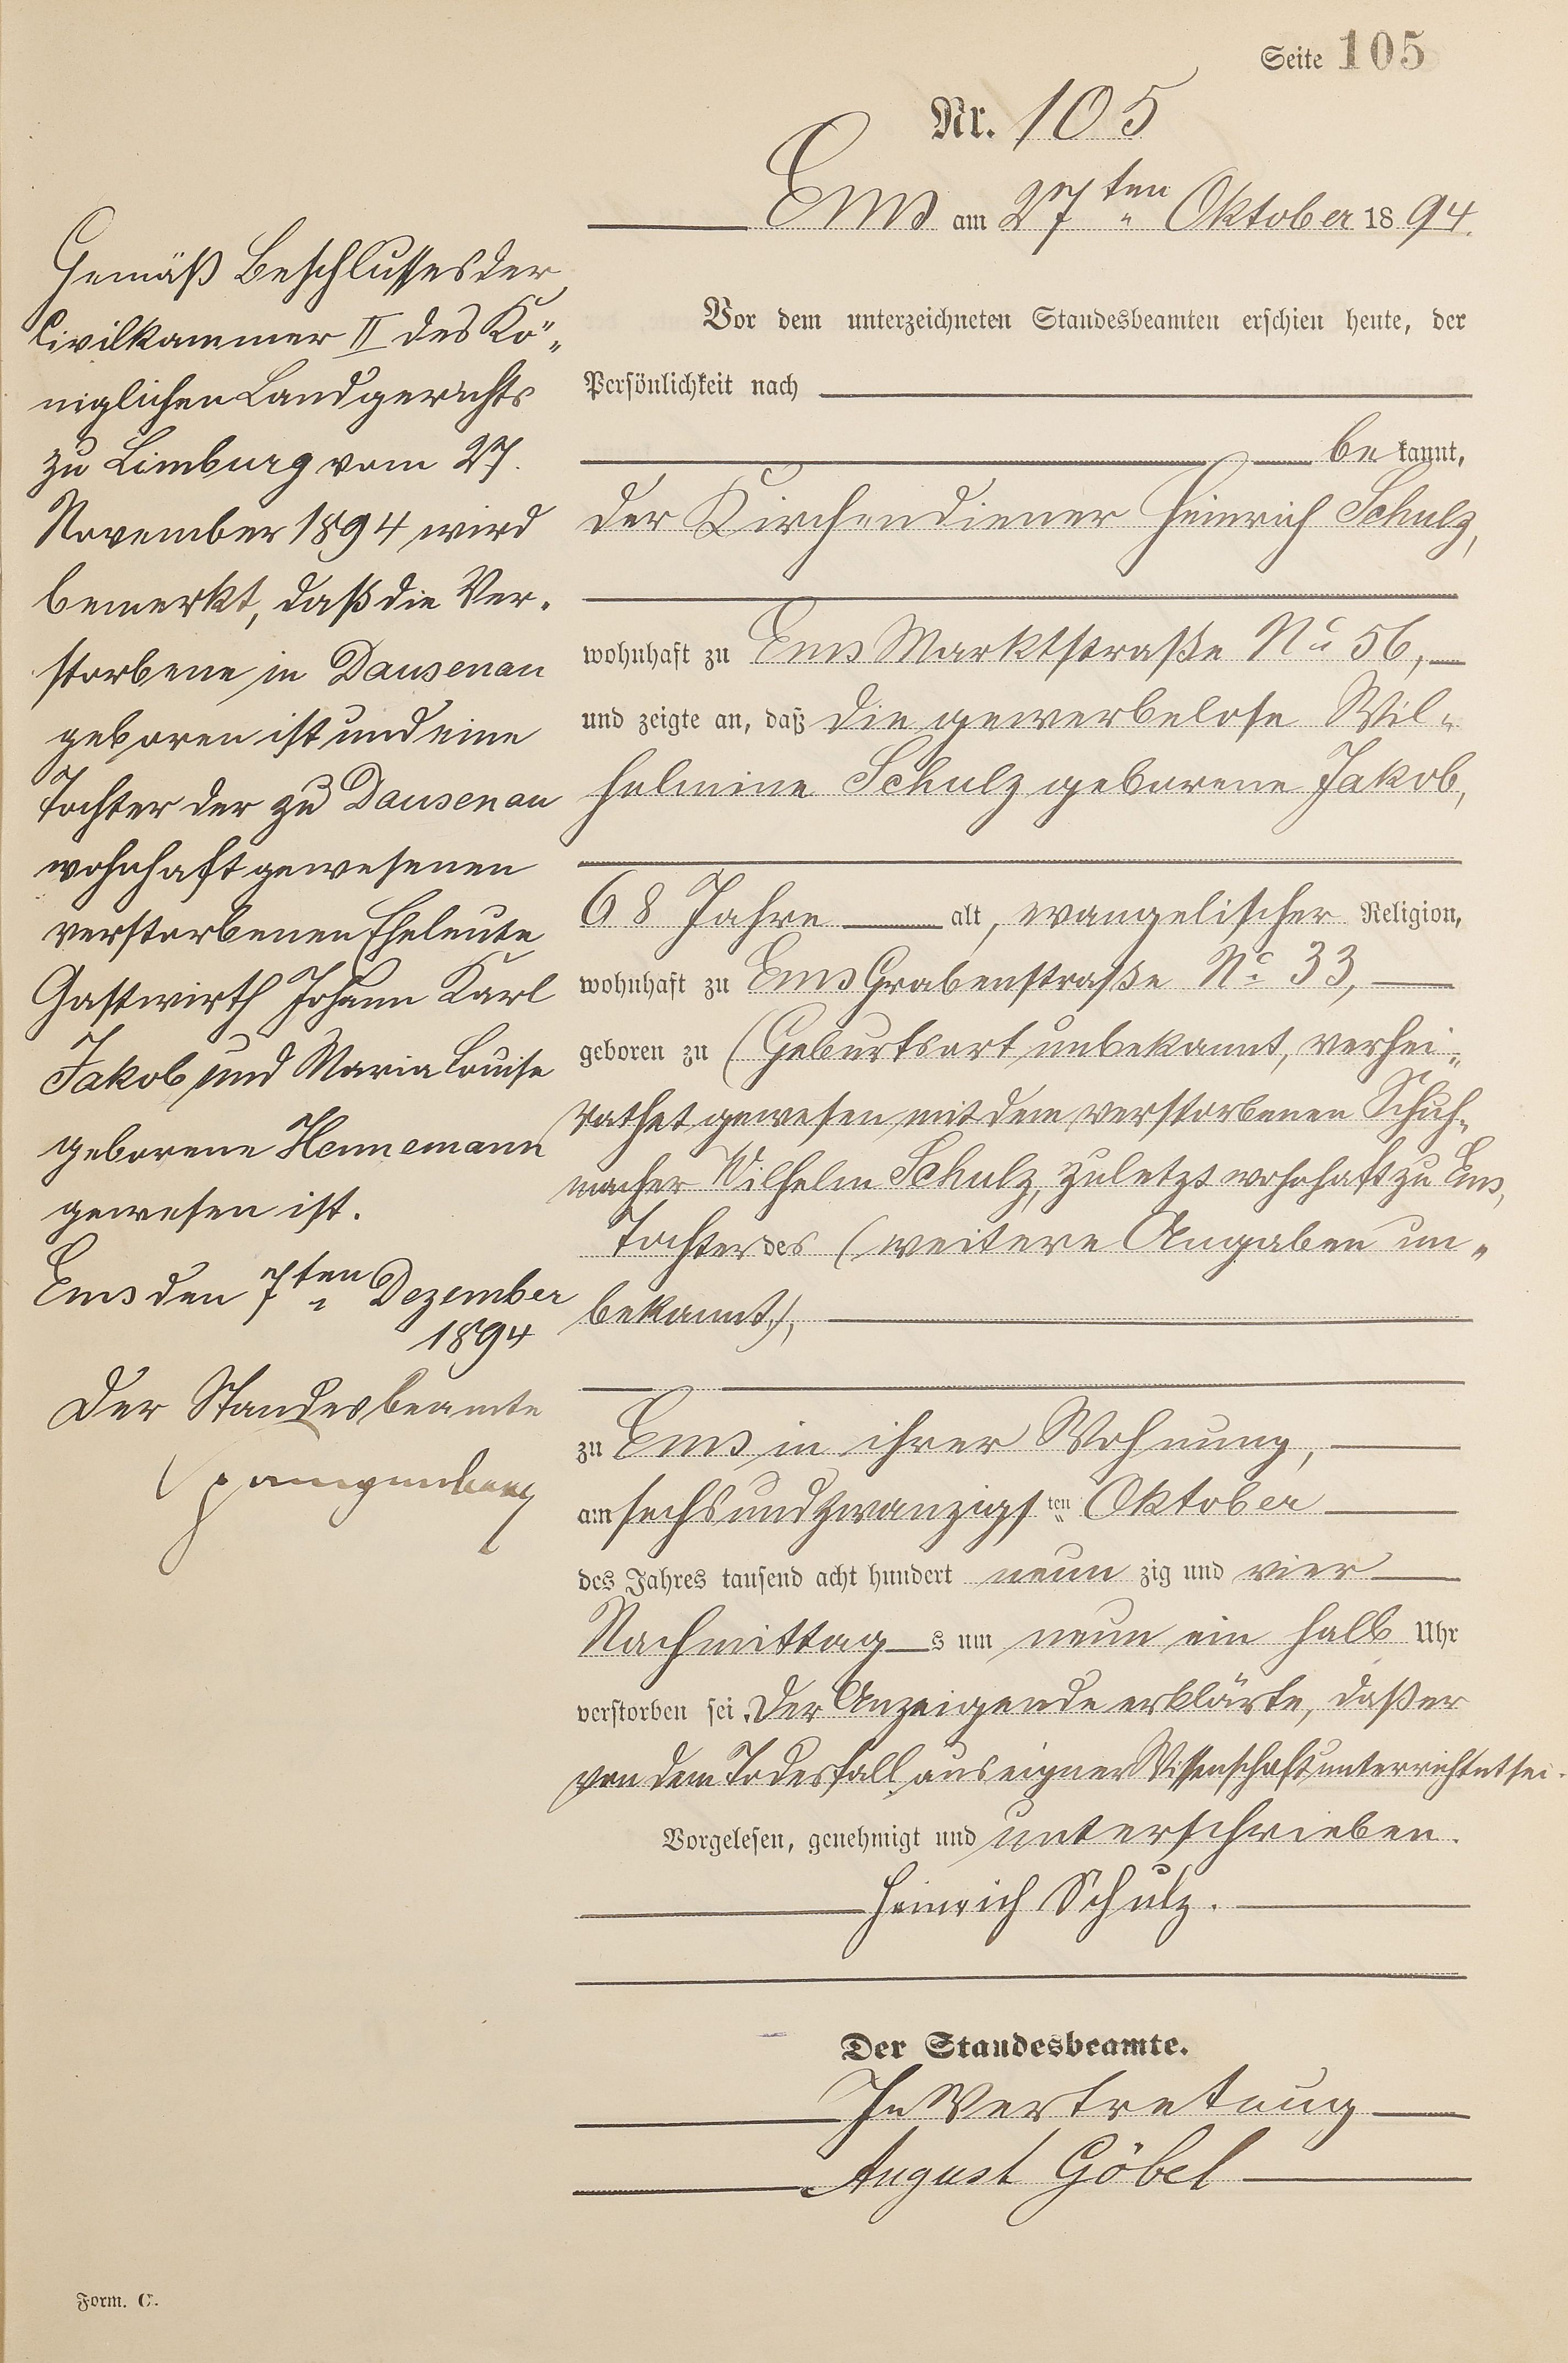 Seite 105
Nr. 105
Ems am 27ten Oktober 1894.
Vor dem unterzeichneten Standesbeamten erschien heute, der
Persönlichkeit nach
bekannt,
der Kirchendiener Heinrich Schulz,
wohnhaft zu Ems Marktstraße No 56,
und zeigte an, daß die gewerbelose Wil-
helmine Schulz geborene Jakob,
68 Jahre alt, evangelischer Religion,
wohnhaft zu Ems Grabenstraße No 33,
geboren zu (Geburtsort unbekannt, verhei-
rathet gewesen mit dem verstorbenen Schuh-
macher Wilhelm Schulz, zuletzt wohnhaft zu Ems,
Tochter des (weitere Angaben un-
bekannt),
zu Ems in ihrer Wohnung,
am sechsundzwanzigsten Oktober
des Jahres tausend acht hundert neunzig und vier
Nachmittags um neun ein halb Uhr
verstorben sei. Der Anzeigende erklärte, daß er
von dem Todesfall aus eigner Wissenschaft unterrichtet sei.
Vorgelesen, genehmigt und unterschrieben.
Heinrich Schulz.
Der Standesbeamte.
In Vertretung
August Göbel
Gemäß Beschlusses der
Civilkammer II des Kö-
niglichen Landgerichts
zu Limburg vom 27.
November 1894 wird
bemerkt, daß die Ver-
storbene in Dausenau
geboren ist und eine
Tochter der zu Dausenau
wohnhaft gewesenen
verstorbenen Eheleute
Gastwirth Johann Karl
Jakob und Maria Louise
geborene Hennemann
gewesen ist.
Ems den 7ten Dezember
1894
Der Standesbeamte
Spangenberg
Form. C.